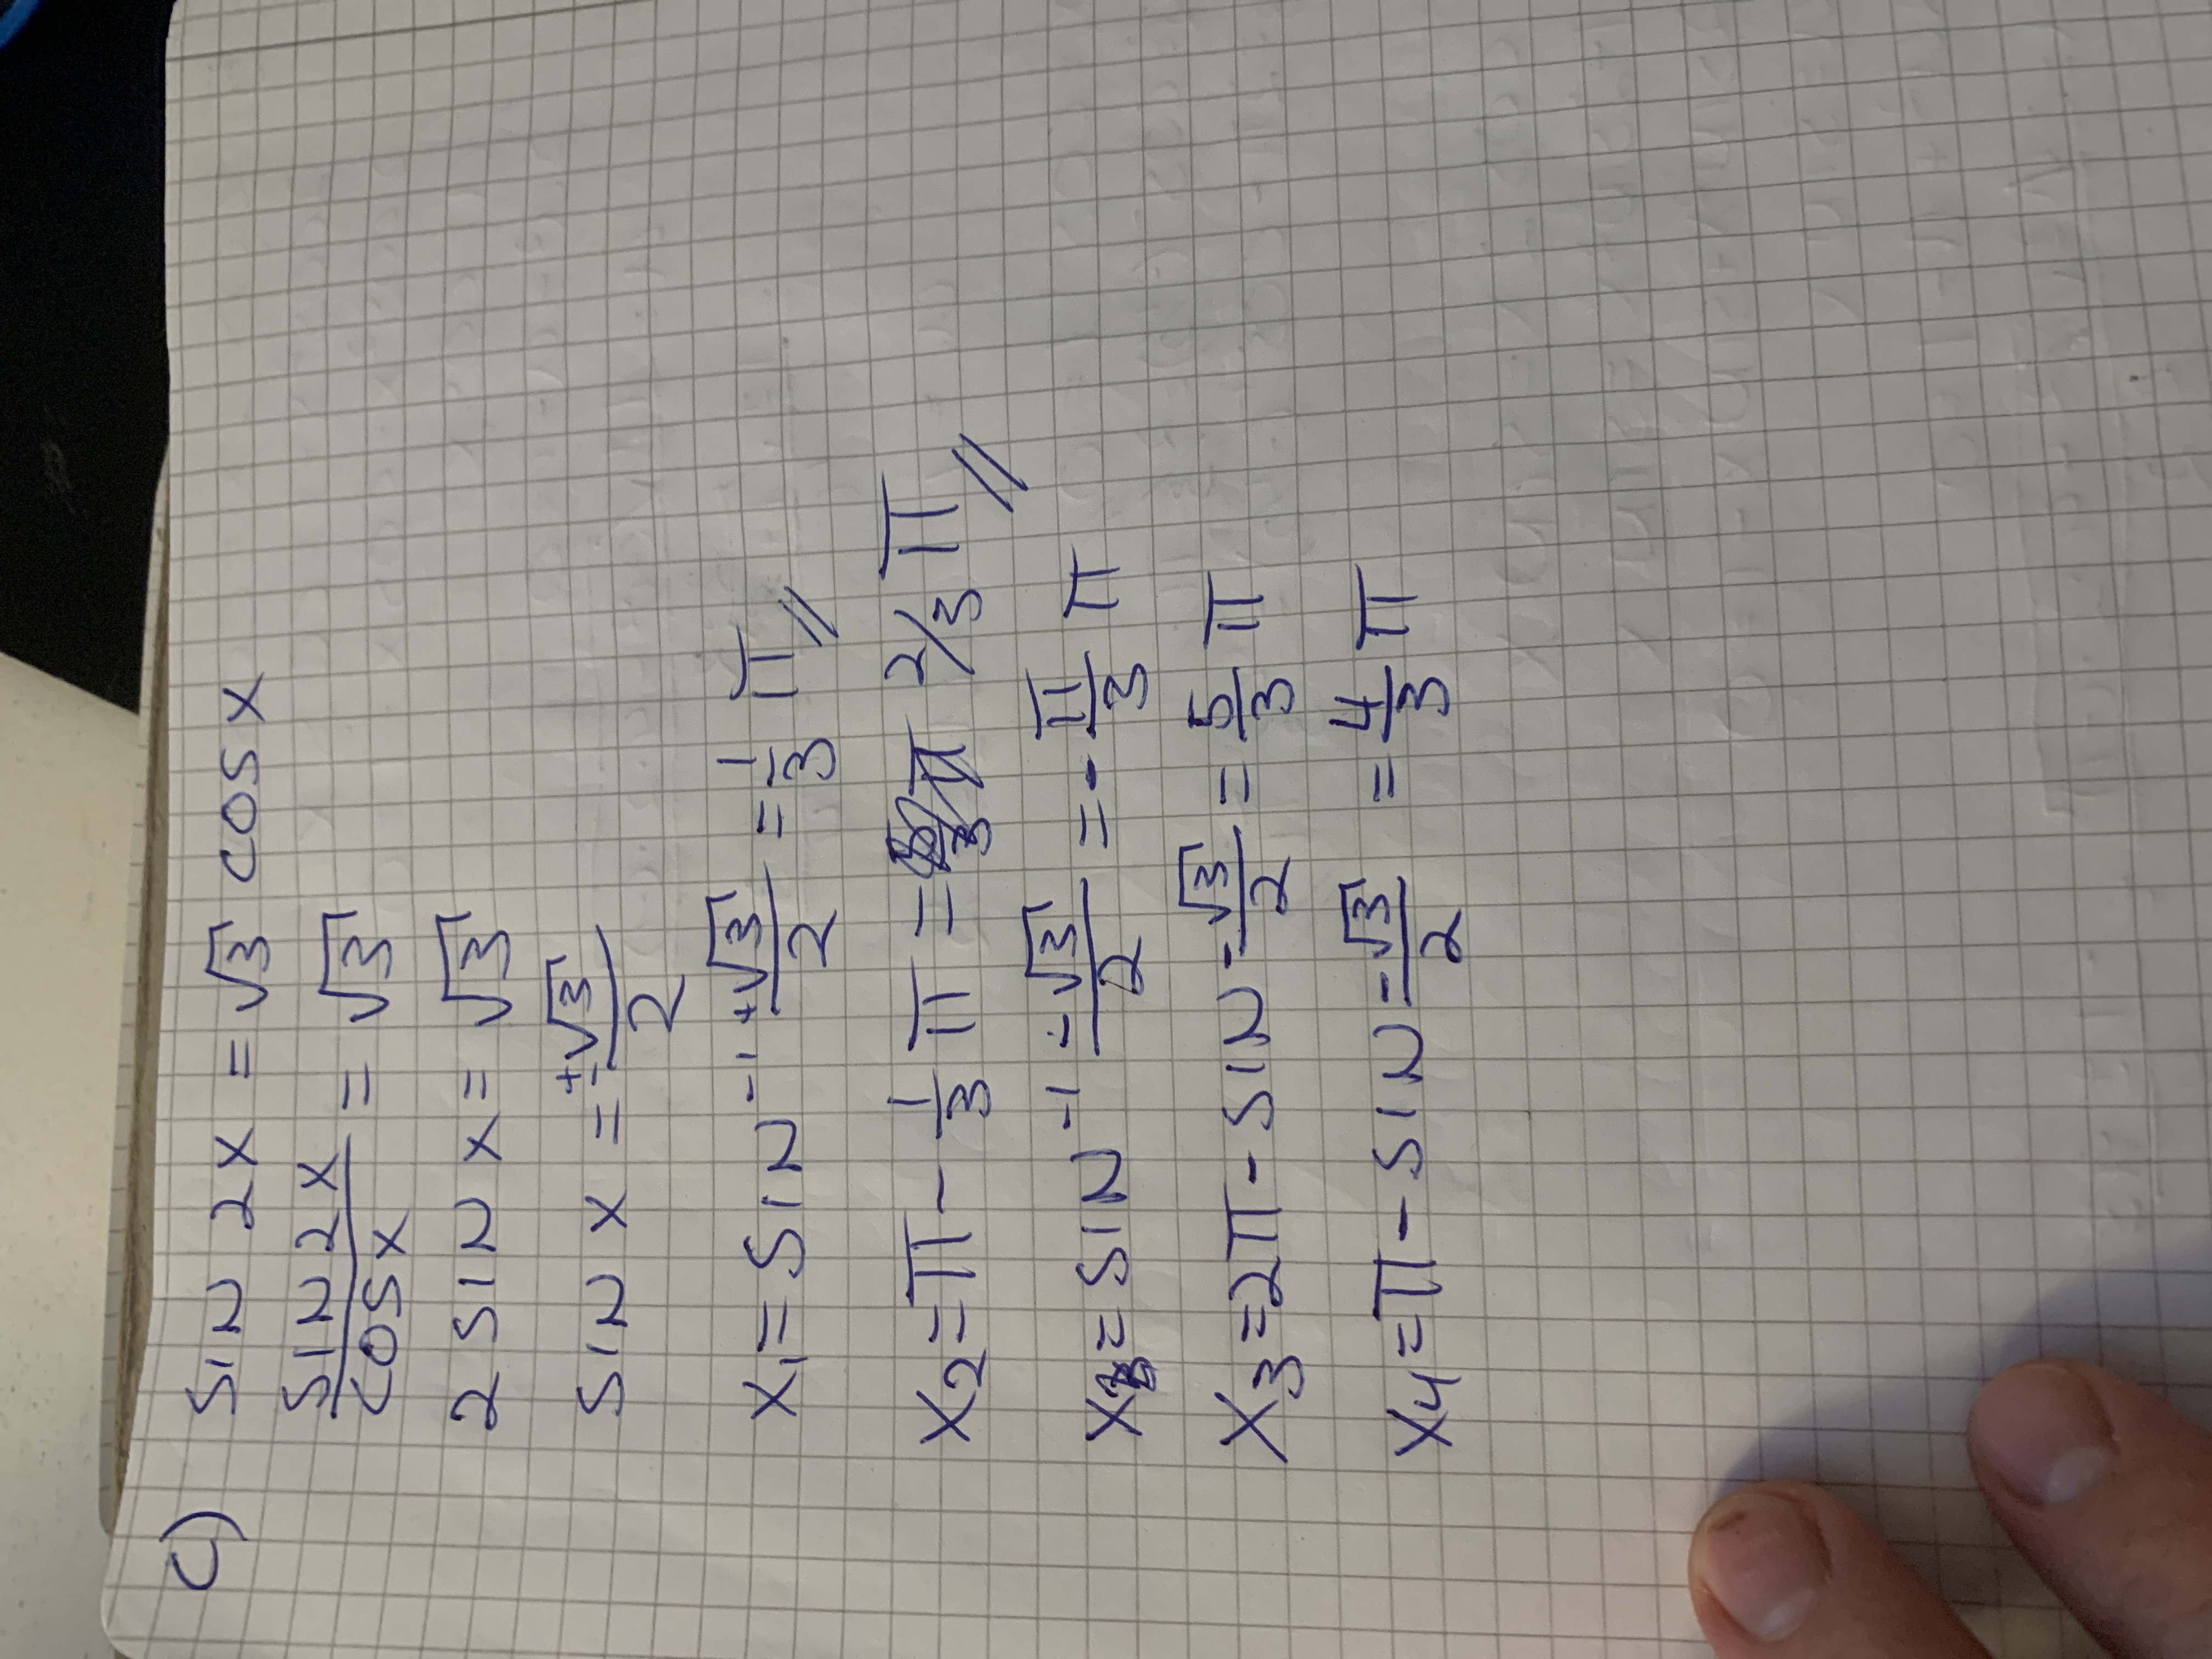 C) SIN 2X = √3 COSX
SIN2X/COSX = √3
2 SIN X = √3
SIN X = ±√3/2
X₁ = SIN⁻¹ +√3/2 = 1/3 π //
X₂ = π - 1/3 π = 2/3 π //
X₃ = SIN⁻¹ -√3/2 = - π/3 π
X₃ = 2π - SIN -√3/2 = 5/3 π
X₄ = π - SIN -√3/2 = 4/3 π